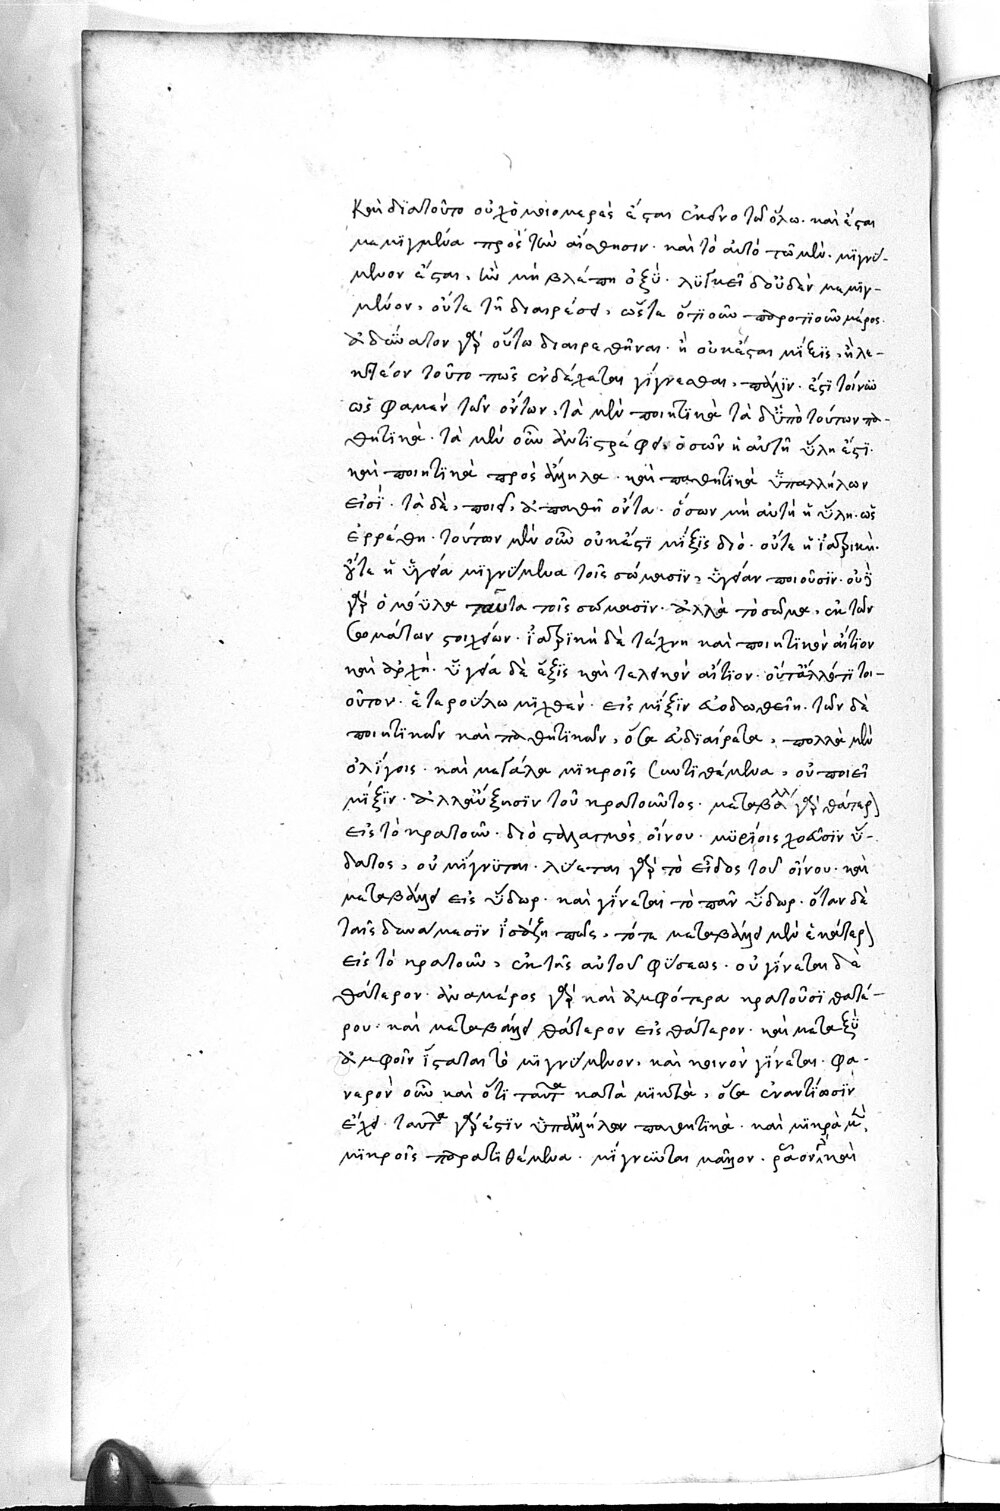 Καὶ διατοῦτο οὐχ ὁμοιομερὲς ἔσται ἐκεῖνο τῶ ὅλω. καὶ ἔσται
μεμιγμένα πρὸς τὴν αἴσθησιν. καὶ τὸ αὐτὸ τῶ μὲν. μιγνύ-
μενον ἔσται, τῶ μὴ βλέπη ὀξύ. λυγκεῖ δ' οὐδὲν μεμιγ-
μένον, οὔτε τῆ διαιρέσει, ὥστε ὁτιοῦν παρ' ὁτιοῦν μέρος.
ἀδύνατον γὰρ οὕτω διαιρεθῆναι. ἢ οὐκ ἔσται μῖξις, ἢ λε-
κτέον τοῦτο πῶς ἐνδέχεται γίγνεσθαι, πάλιν. ἔστι τοίνυν
ὡς φαμὲν τῶν ὄντων, τὰ μὲν ποιητικὰ τὰ δ' ὑπὸ τούτων πα-
θητικά. τὰ μὲν οὖν ἀντιστρέφει, ὅσων ἡ αὐτὴ ὕλη ἐστί.
καὶ ποιητικὰ πρὸς ἄλληλα. καὶ παθητικὰ ὑπ' ἀλλήλων
εἰσί. τὰ δὲ, ποιεῖ, ἀπαθῆ ὄντα. ὅσων μὴ αὐτὴ ἡ ὕλη. ὡς
ἐρρέθη. τούτων μὲν οὖν οὐκ ἔστι μῖξις διὸ. οὔτε ἡ ἰατρικὴ.
οὔτε ἡ ὑγεία μιγνύμενα τοῖς σώμασιν, ὑγείαν ποιοῦσιν. οὐχὶ
γὰρ ὁμόϋλα ταῦτα τοῖς σώμασιν. ἀλλὰ τὸ σῶμα, ἐκ τῶν
σωμάτων στοιχείων. ἰατρικὴ δὲ τέχνη καὶ ποιητικὸν αἴτιον
καὶ ἀρχὴ. ὑγεία δὲ ἕξις καὶ τελικὸν αἴτιον. οὔτ' ἄλλό τι τοι-
οῦτον. ἑτεροΰλω μιχθὲν. εἰς μῖξιν ἀποδωθείη. τῶν δὲ
ποιητικῶν καὶ παθητικῶν, ὅσα εὐδιαίρετα, πολλὰ μὲν
ὀλίγοις. καὶ μεγάλα μικροῖς συντιθέμενα, οὐ ποιεῖ
μῖξιν. ἀλλ' αὔξησιν τοῦ κρατοῦντος. μεταβάλλει γὰρ θάτερον
εἰς τὸ κρατοῦν. διὸ σταλαγμὸς οἴνου. μυρίοις χοεῦσιν ὕ-
δατος, οὐ μίγνυται. λύεται γὰρ τὸ εἶδος τοῦ οἴνου. καὶ
μεταβάλλει εἰς ὕδωρ. καὶ γίνεται τὸ πᾶν ὕδωρ. ὅταν δὲ
ταῖς δυνάμεσιν ἰσάζη πως, τότε μεταβάλλει μὲν ἑκάτερον
εἰς τὸ κρατοῦν, ἐκ τῆς αὐτοῦ φύσεως. οὐ γίνεται δὲ
θάτερον. ἀναμέρος γὰρ καὶ ἀμφότερα κρατοῦσι θατέ-
ρου. καὶ μεταβάλλει θάτερον εἰς θάτερον. καὶ μεταξὺ
ἀμφοῖν ἵσταται τὸ μιγνύμενον, καὶ κοινὸν γίνεται. φα-
νερὸν οὖν καὶ ὅτι ταῦτα κατὰ μικτὰ, ὅσα ἐναντίωσιν
ἔχει. ταῦτα γὰρ ἐστὶν ὑπ' ἀλλήλων παθητικὰ. καὶ μικρὰ μὲν,
μικροῖς παρατιθέμενα. μίγνυται μᾶλλον. ῥᾷον γὰρ καὶ